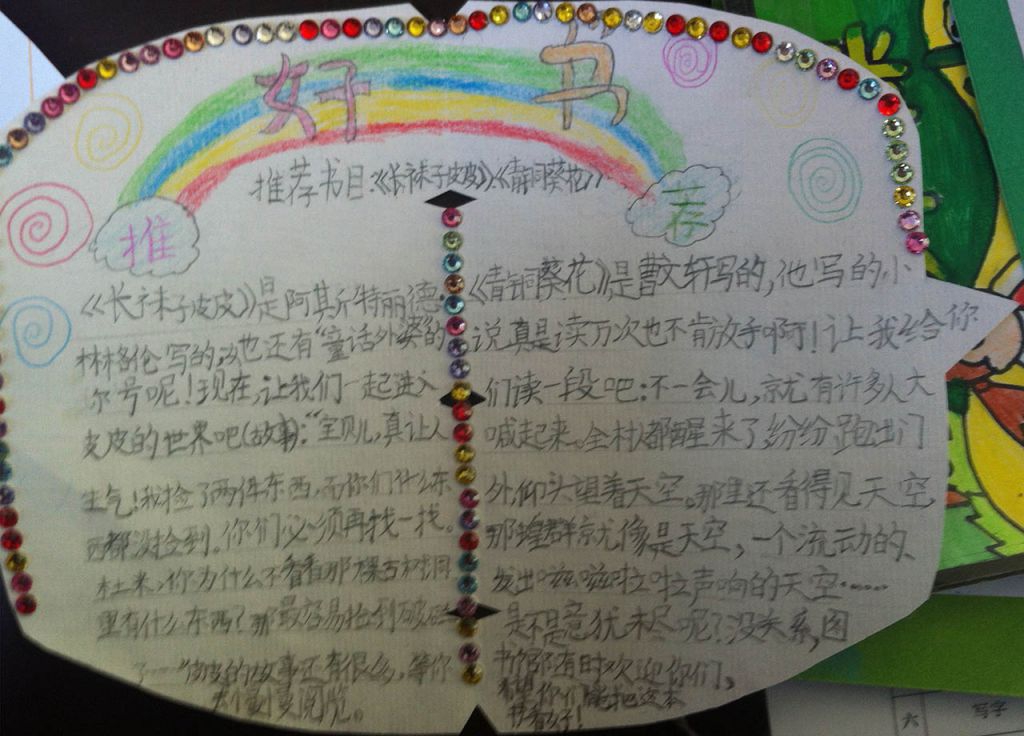 好书
推荐
推荐书目:《长袜子皮皮》、《青铜葵花》
《长袜子皮皮》是阿斯特丽德·
林格伦写的,她还有“童话外婆”的
尔号呢!现在,让我们一起进入
皮皮的世界吧(故事):“宝贝儿,真让人
生气!我捡了两件东西,而你们什么东
西都没捡到。你们必须再找一找。
杜米,你为什么不看看那棵古树洞
里有什么东西?那最容易捡到
了……”皮皮的故事还有很多,等你
去慢慢阅览。
《青铜葵花》是曹文轩写的,他写的小
说真是读万次也不肯放手啊!让我给你
们读一段吧:不一会儿,就有许多人大
喊起来。全村人都醒来了纷纷跑出门
外,仰头望着天空。那里还看得见天空
那蝗群就像是天空,一个流动的、
发出嗞嗞啦啦声响的天空……
是不是意犹未尽呢?没关系,图
书馆随时欢迎你们,
希望你们能把这本
书看好!
六
写字